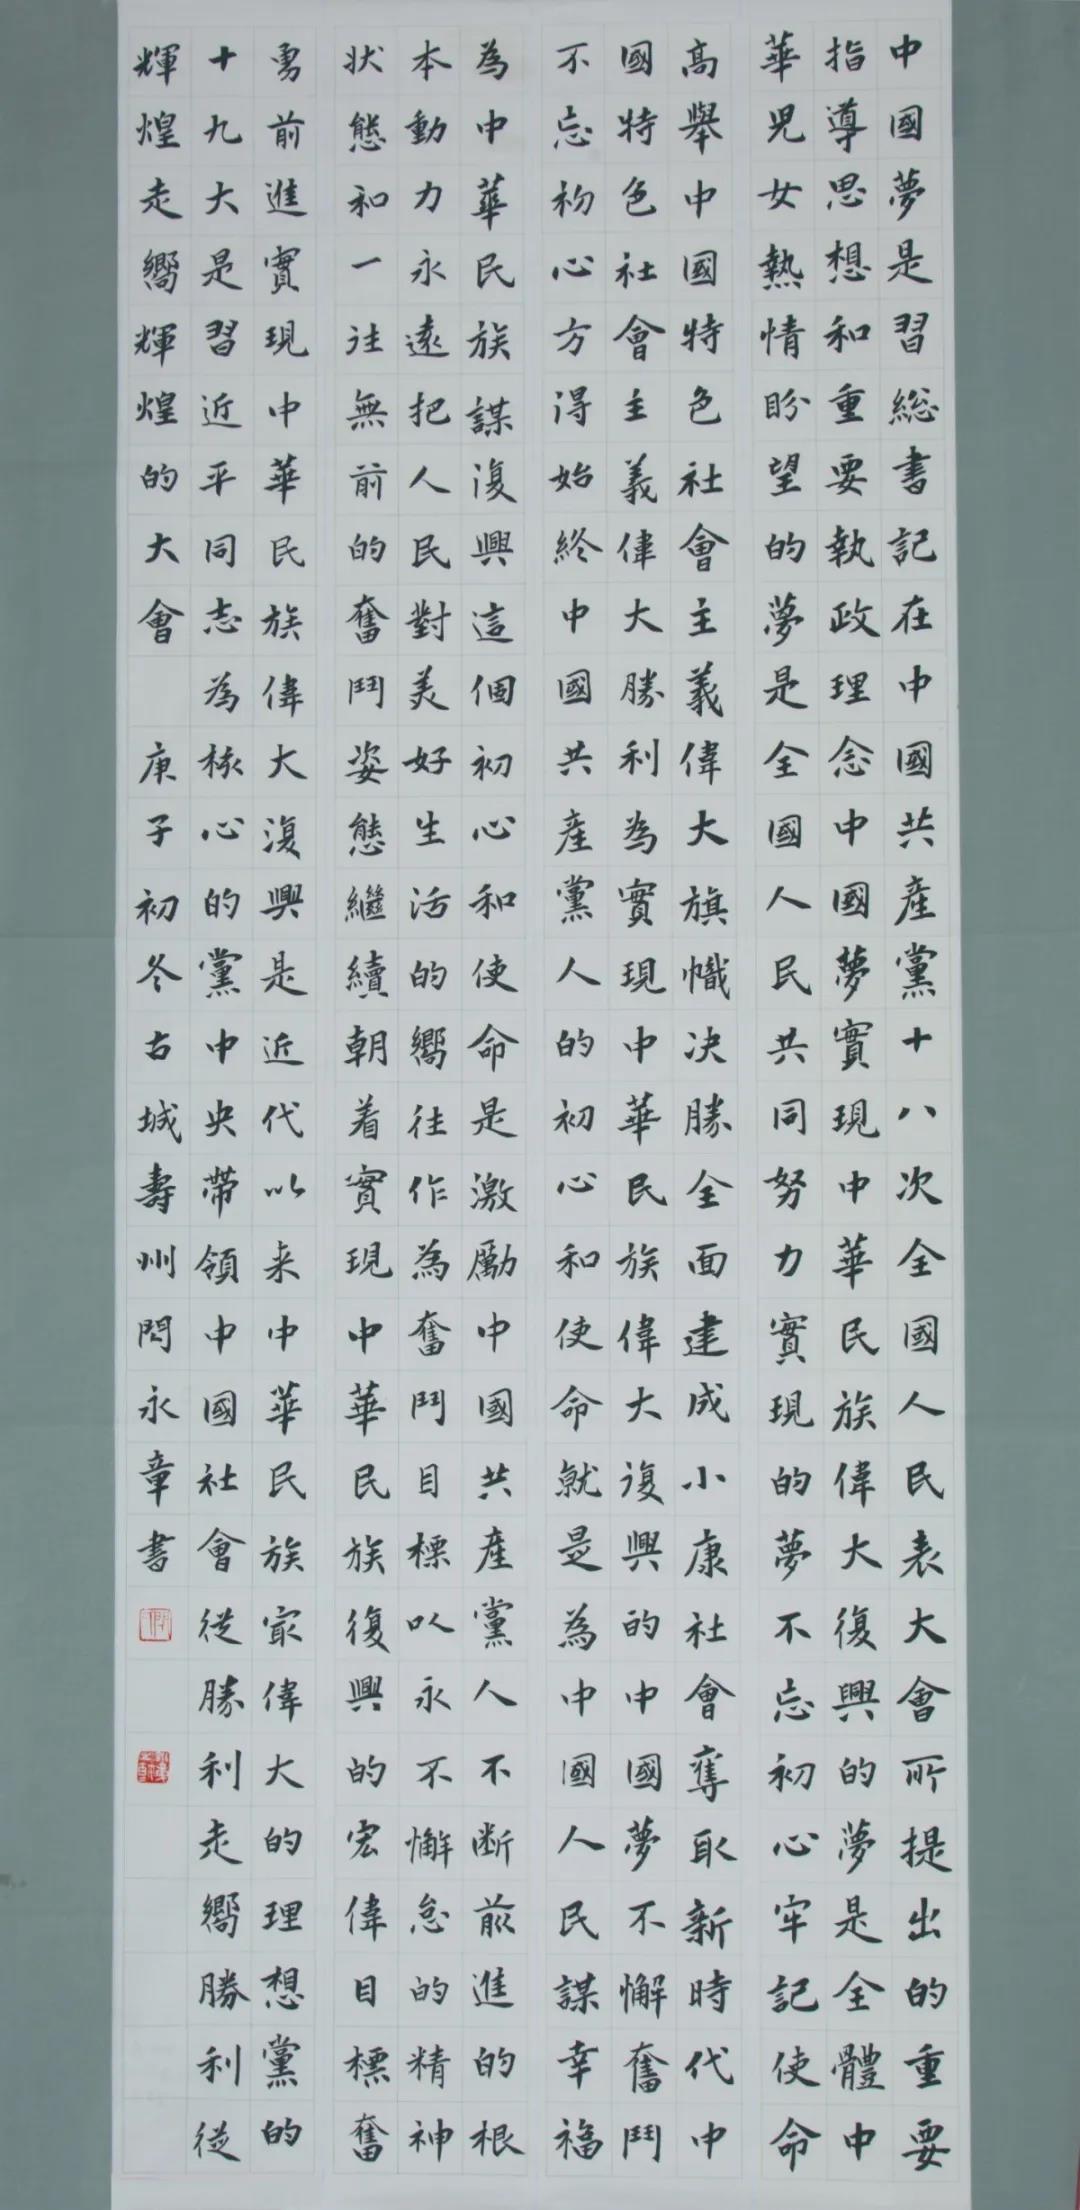 中國夢是習総書記在中國共産黨十八次全國人民表大會所提出的重要
指導思想和重要執政理念中國夢實現中華民族偉大復興的夢是全體中
華児女熱情盼望的夢是全國人民共同努力實現的夢不忘初心牢記使命
高舉中國特色社會主義偉大旗幟决勝全面建成小康社會奪取新時代中
國特色社會主義偉大勝利為實現中華民族偉大復興的中國夢不懈奮鬥
不忘初心方得始終中國共産黨人的初心和使命就是為中國人民謀幸福
為中華民族謀復興這個初心和使命是激勵中國共産黨人不断前進的根
本動力永遠把人民對美好生活的嚮往作為奮鬥目標以永不懈怠的精神
狀態和一往無前的奮鬥姿態繼續朝着實現中華民族復興的宏偉目標奮
勇前進實現中華民族偉大復興是近代以来中華民族最偉大的理想黨的
十九大是習近平同志為核心的黨中央帶領中國社會從勝利走嚮勝利從
輝煌走嚮輝煌的大會 庚子初冬古城壽州閃永章書